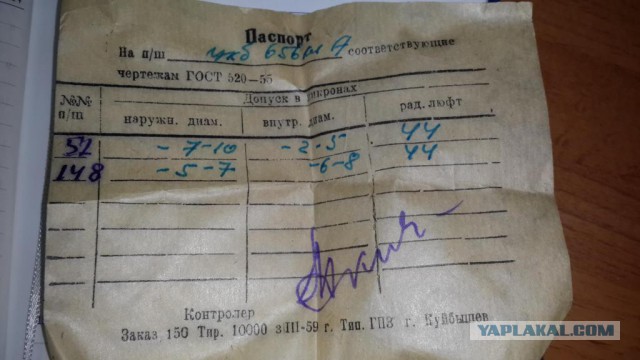 Паспорт
На п/ш укб 656 А соответствующие
чертежам ГОСТ 520—55
№№ п/ш Допуск в микронах
наружн. диам. внутр. диам. рад. люфт
51 -7-10 -2-5 44
148 -5-7 -6-8 44
Контролер
Заказ 150 Тир. 10000 з III-59 г. Тип. ГПЗ г. Куйбышев
YAPLAKAL.COM